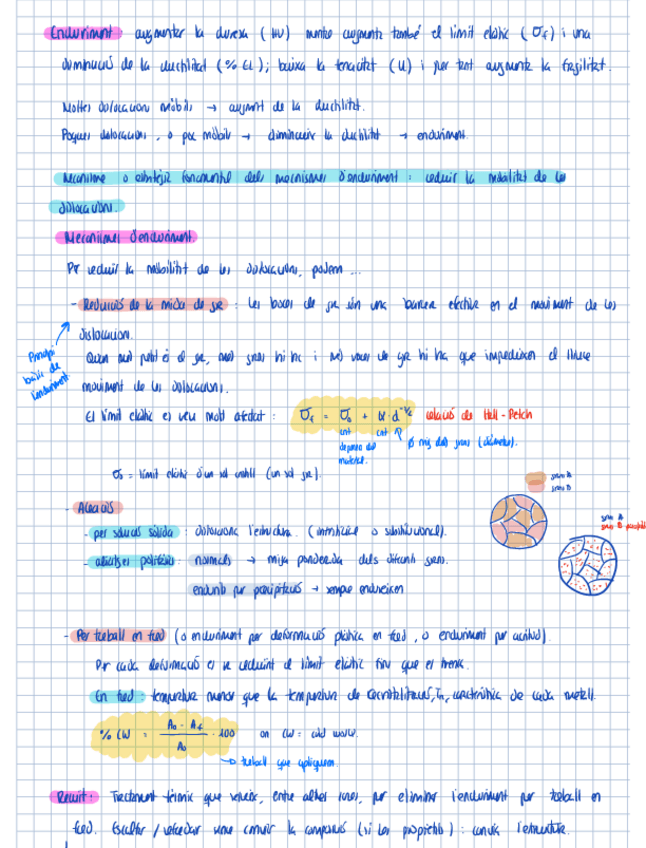 Enduriment: augmentar la duresa (HV) mentre augmenta també el límit elàstic (σf) i una
disminució de la ductilitat (% EL); baixa la tenacitat (U) i per tant augmenta la fragilitat.
Moltes dislocacions mòbils → augment de la ductilitat.
Poques dislocacions, o poc mòbils → disminueix la ductilitat → enduriment.
Mecanisme o estratègia fonamental dels mecanismes d'enduriment: reduir la mobilitat de les
dislocacions.
Mecanismes d'enduriment.
Per reduir la mobilitat de les dislocacions, podem ...
- Reducció de la mida de gra: les vores de gra són una barrera efectiva en el moviment de les
dislocacions.
Principi bàsic de l'enduriment
Quan més petit és el gra, més grans hi ha i més vores de gra hi ha que impedeixen el lliure
moviment de les dislocacions.
El límit elàstic es veu molt afectat: σf = σo + K · d^-1/2 relació de Hall-Petch
cnt cnt
depenen del
material.
Ø mig dels grans (diàmetre).
σo = límit elàstic d'un sol cristall (un sol gra).
gram A
gram B
- Aleació
- per solució sòlida: distorsiona l'estructura. (intersticial o substitucional).
gram A
gram B
- aliatges polifàsics: normals → mitja ponderada dels diferents grans.
endurits per precipitació → sempre endureixen
- Per treball en fred (o enduriment per deformació plàstica en fred, o enduriment per acritud).
Per cada deformació es va reduint el límit elàstic fins que es trenca.
En fred: temperatura menor que la temperatura de recristal·lització, característica de cada metall.
% CW = (Ao - Af) / Ao · 100 on CW = cold work.
→ treball que apliquem
Recuit: Tractament tèrmic que serveix, entre altres coses, per eliminar l'enduriment per treball en
fred. Escalfar / refredar sense canviar la composició (si les propietats): canvia l'estructura.